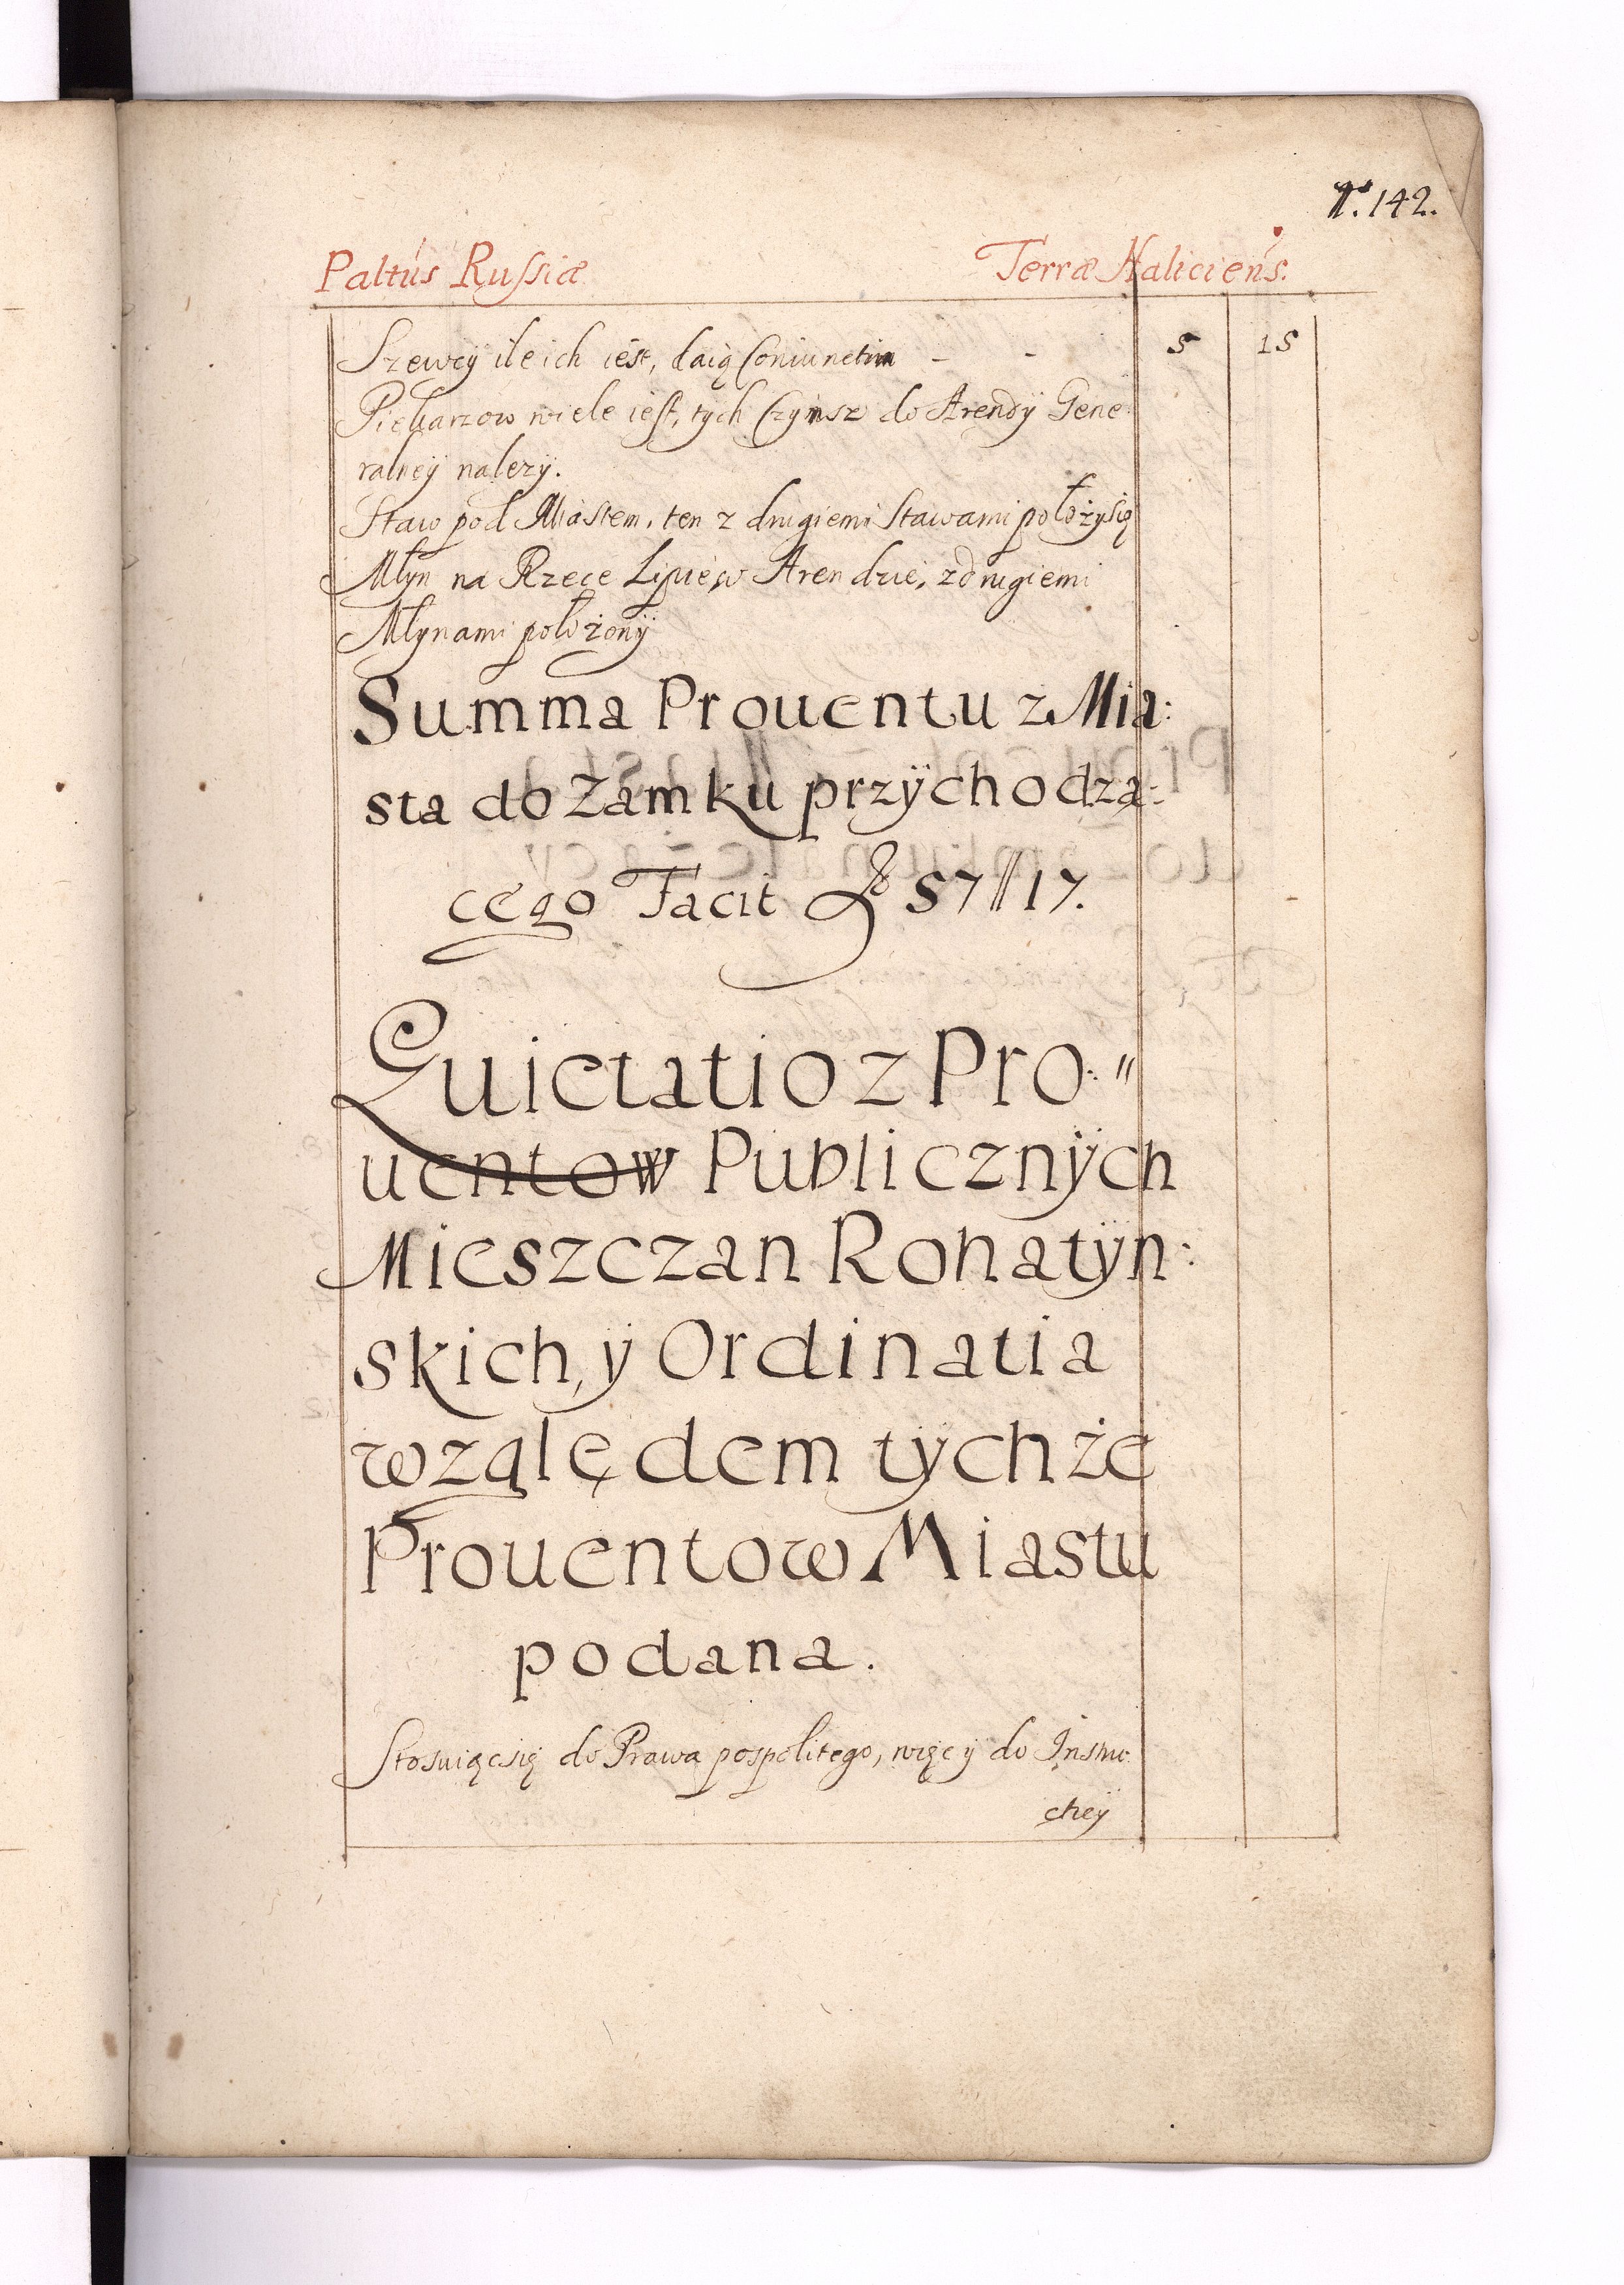 142.
Paltus Russiæ Terræ Haliciens.
Szewcÿ ile ich iest, daią Coniunctim - - 5 15
Piekarzow wiele iest, tych Czynsz do Arendÿ Gene
ralneÿ nalezÿ.
Staw pod Miastem, ten z drugiemi Stawami położy się
Młyn na Rzece Lipie, w Arendzie, z drugiemi
Młynami położonÿ
Summa Prouentu z Mia:
sta do Zamku przÿchodzą:
cego Facit 57 // 17.
Quietatio z Pro: //
uentow Publicznÿch
Mieszczan Rohatÿn:
skich, ÿ Ordinatia
względem tÿchże
Prouentow Miastu
podana.
Stosuiąc się do Prawa pospolitego, więc ÿ do Instru:
ctieÿ